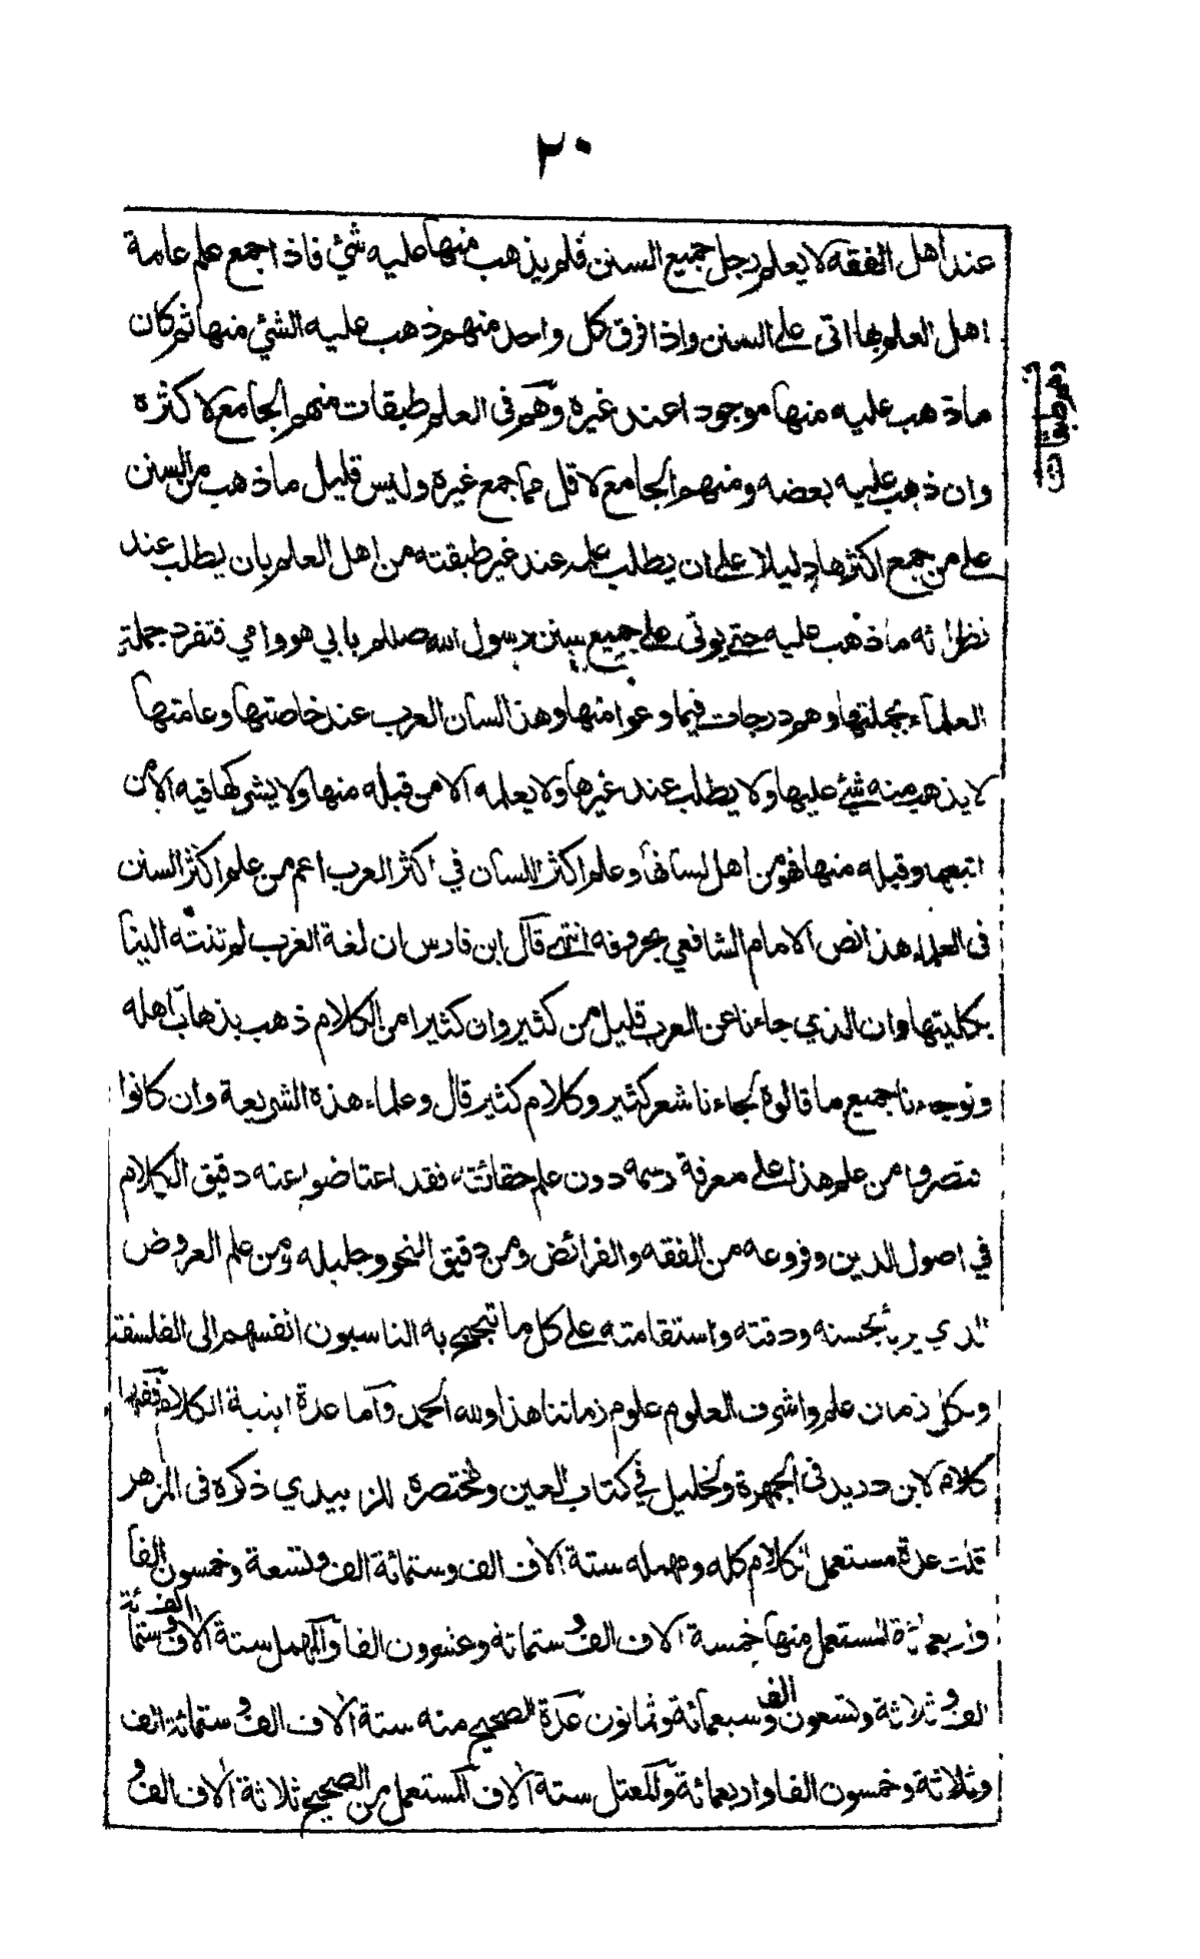 ٢٠
عند اهل الفقه لا يعلم رجل جميع السنن فلم يذهب منها عليه شئ فاذا جمع علم عامة
اهل العلم بها اتى على السنن واذا فرق كل واحد منهم ذهب عليه الشئ منها ثم كان
ماذهب عليه منها موجودا عند غيره وهم فى العلم طبقات منهم الجامع لاكثره
وهم طبقات
وان ذهب عليه بعضه ومنهم الجامع لاقل مما جمع غيره وليس قليل ما ذهب من السنن
على من جمع اكثرها دليلا على ان يطلب علمه عند غير طبقته من اهل العلم بان يطلب عند
نظرائه ما ذهب عليه حتى يوتى على جميع سنن رسول الله صللم بابي هو وامي فتفرد جملة
العلماء بجملتها وهم درجات فيما وعوا منها وهذا لسان العرب عند خاصتها وعامتها
لا يذهب منه شئ عليها ولا يطلب عند غيرها ولا يعلمه الا من قبله منها ولا يشركها فيه الا من
اتبعها وقبله منها فهو من اهل لسانها وعلم اكثر اللسان في اكثر العرب اعم من علم اكثر السنن
فى العلماء هذا نص الامام الشافعي بحروفه انتهى قال ابن فارس ان لغة العرب لم تنته الينا
بكليتها وان الذي جاءنا عن العرب قليل من كثير وان كثيرا من الكلام ذهب بذهاب اهله
ولو جاءنا جميع ما قالوه لجاءنا شعر كثير وكلام كثير قال وعلماء هذه الشريعة وان كانوا
اقتصروا من علم هذا على معرفة رسمه دون علم حقائقه فقد اعتاضوا عنه دقيق الكلام
في اصول الدين وفروعه من الفقه والفرائض ومن دقيق النحو وجليله ومن علم العروض
الذي يربأ بحسنه ودقته واستقامته على كل ما تبجح به الناسبون انفسهم الى الفلسفة
ولكل زمان علم واشرف العلوم علوم زماننا هذا ولله الحمد وآما عدة ابنية الكلام ففيها
كلام لابن دريد فى الجمهرة ولخليل في كتاب العين ولمختصره للزبيدي ذكره فى المزهر
قلت عدة مستعمل الكلام كله ومهمله ستة الاف الف وستمائة الف وتسعة وخمسون الفا
واربعمائة المستعمل منها خمسة الاف الف وستمائة وعشرون الفا والمهمل ستة الاف الف وستمائة
الف وثلاثة وتسعون الف وسبعمائة وثمانون عدة الصحيح منه ستة الاف الف وستمائة الف
وثلاثة وخمسون الفا واربعمائة والمعتل ستة الاف المستعمل من الصحيح ثلاثة الاف الف و